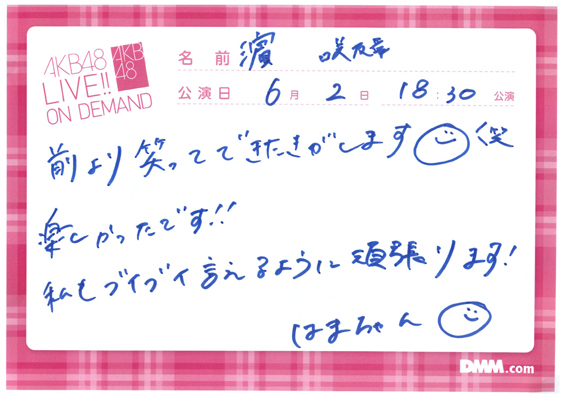 AKB48
LIVE!!
ON DEMAND
AKB
48
名前 濵 咲友菜
公演日 6月 2日 18:30 公演
前より笑ってできたきがします 笑
楽しかったです!!
私もブイブイ言えるように頑張ります!
はまちゃん
DMM.com